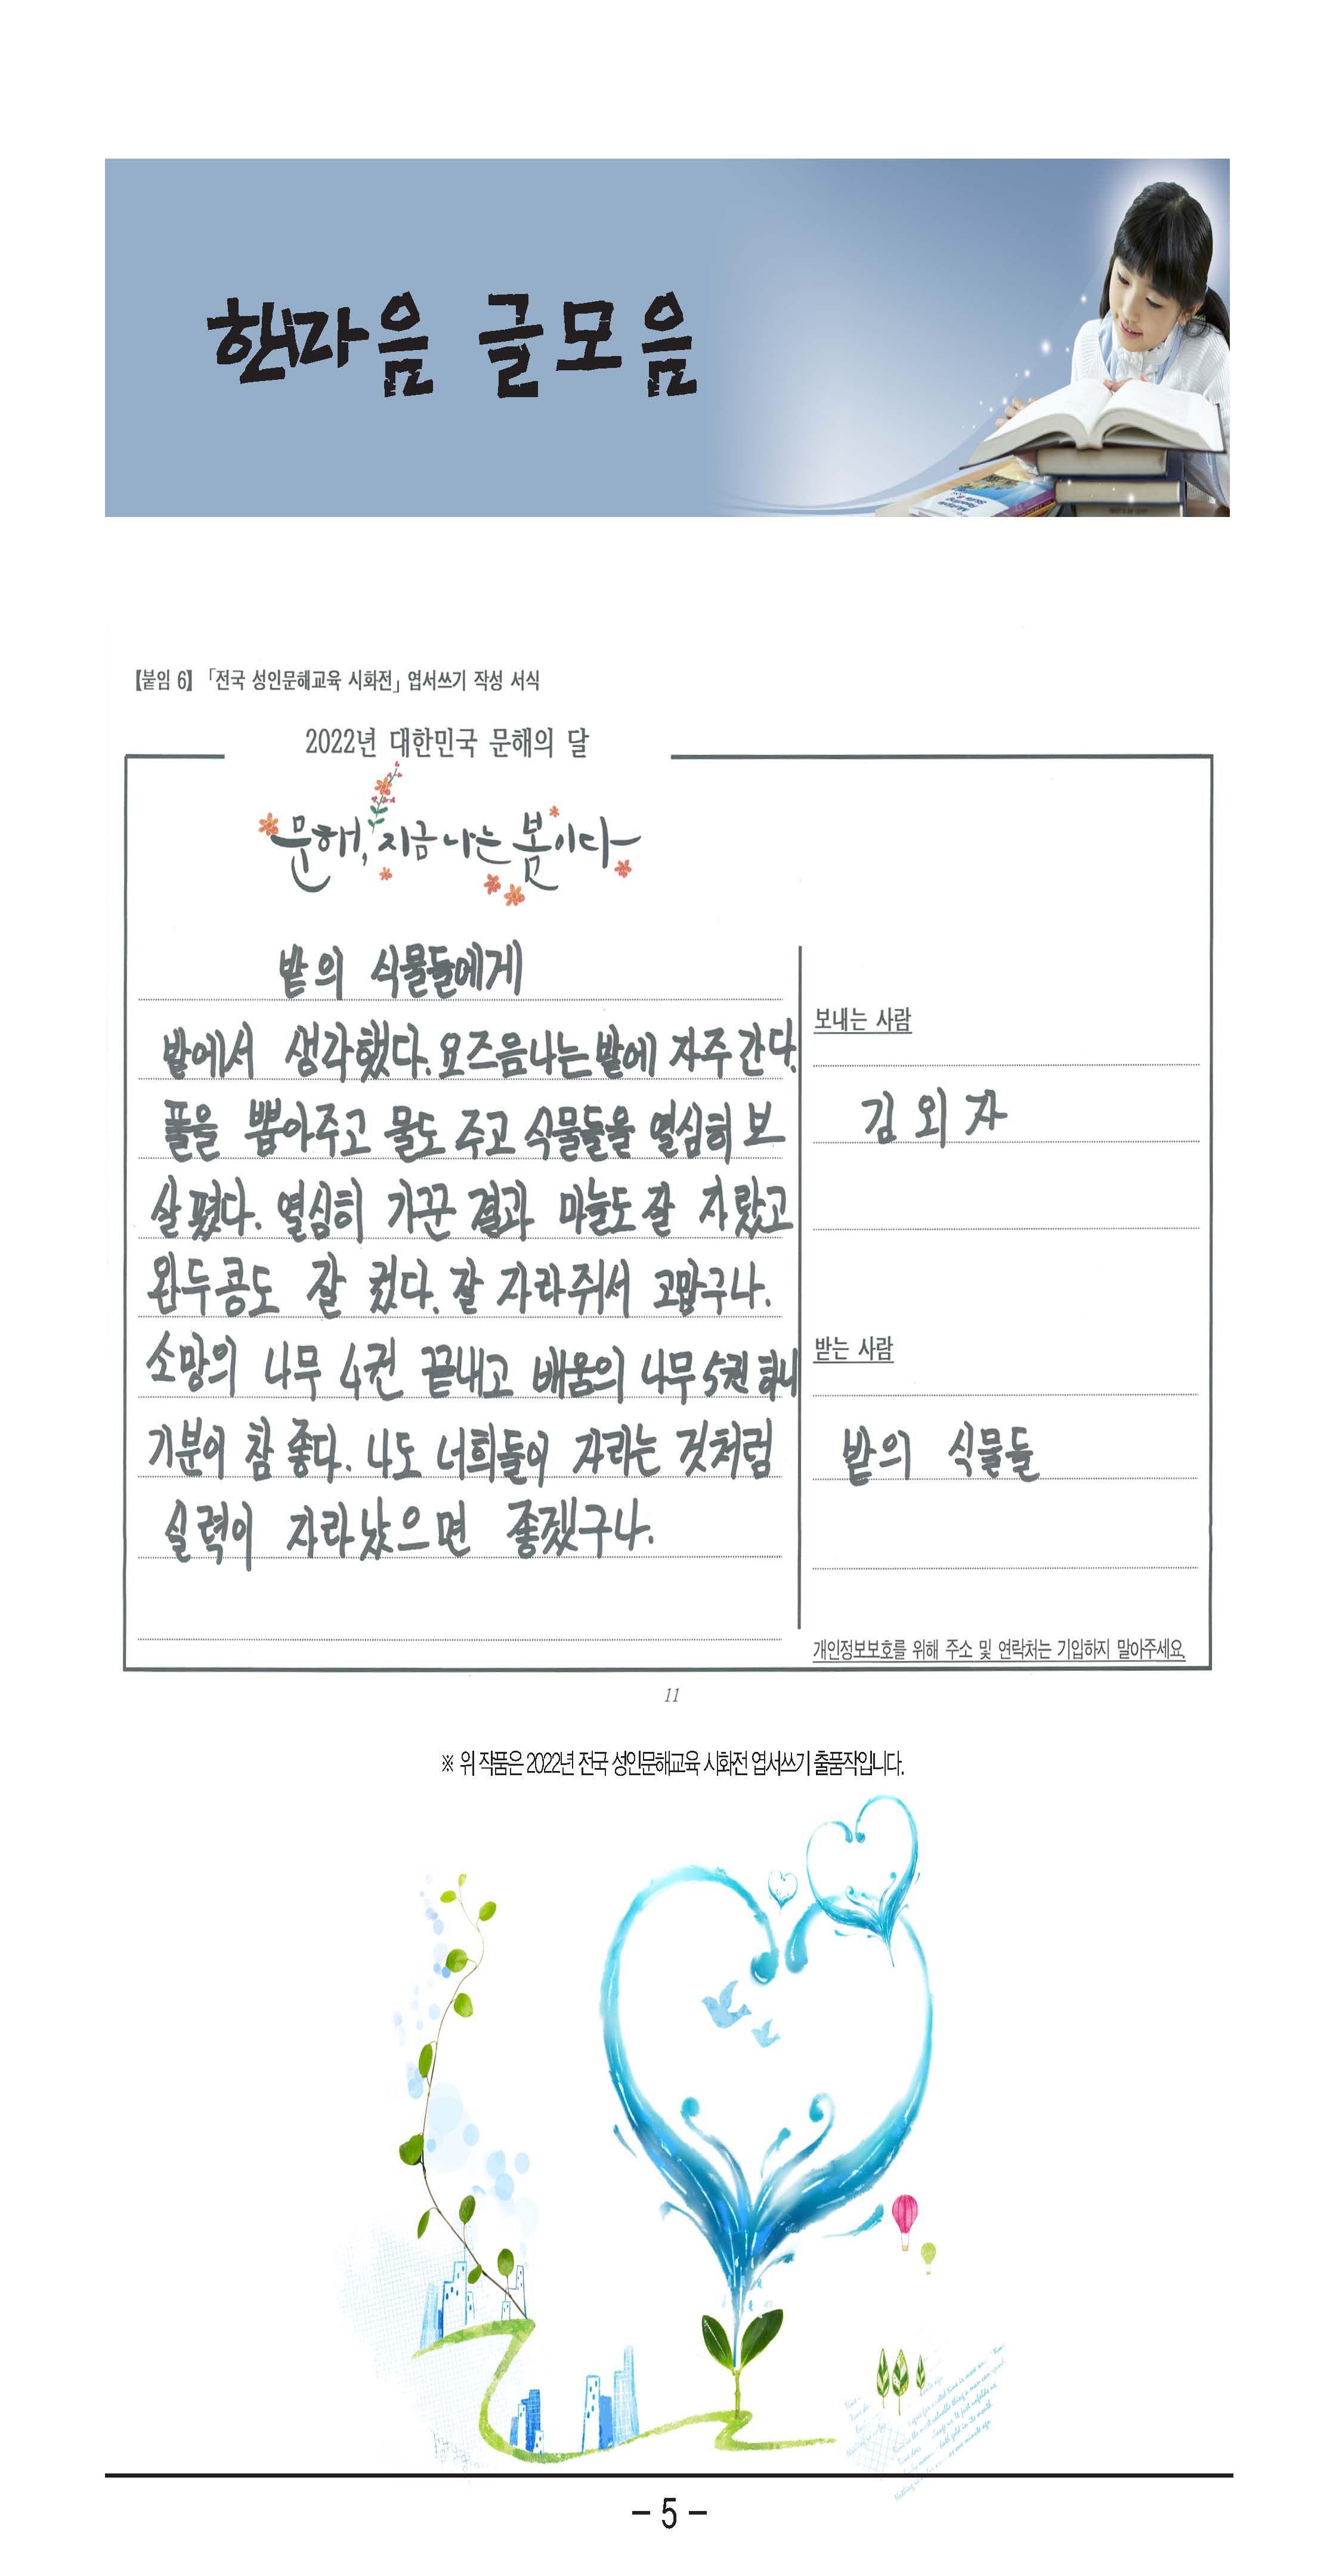 한마음 글모음
【붙임 6】 「전국 성인문해교육 시화전」 엽서쓰기 작성 서식
2022년 대한민국 문해의 달
문해, 지금 나는 봄이다
밭의 식물들에게
밭에서 생각했다. 요즈음나는 밭에 자주 간다.
풀을 뽑아주고 물도 주고 식물들을 열심히 보
살폈다. 열심히 가꾼 결과 마늘도 잘 자랐고
완두콩도 잘 컸다. 잘 자라줘서 고맙구나.
소망의 나무 4권 끝내고 배움의 나무 5권 하니
기분이 참 좋다. 나도 너희들이 자라는 것처럼
실력이 자라났으면 좋겠구나.
보내는 사람
김외자
받는 사람
밭의 식물들
개인정보보호를 위해 주소 및 연락처는 기입하지 말아주세요.
11
※ 위 작품은 2022년 전국 성인문해교육 시화전 엽서쓰기 출품작입니다.
- 5 -